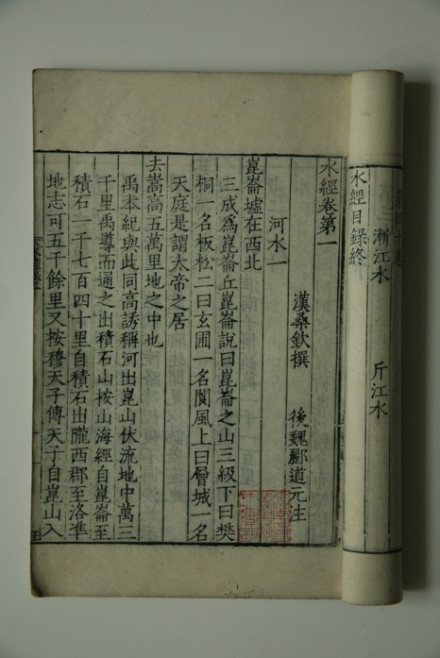 漸江水
斤江水
水經目錄終
水經卷第一
漢桑欽撰 後魏酈道元注
河水一
崑崙墟在西北
三成爲崑崙丘崑崙說曰崑崙之山三級下曰樊
桐一名板松二曰玄圃一名閬風上曰層城一名
天庭是謂太帝之居
去嵩高五萬里地之中也
禹本紀與此同高誘稱河出崑山伏流地中萬三
千里禹導而通之出積石山按山海經自崑崙至
積石一千七百四十里自積石出隴西郡至洛準
地志可五千餘里又按穆天子傳天子自崑山入